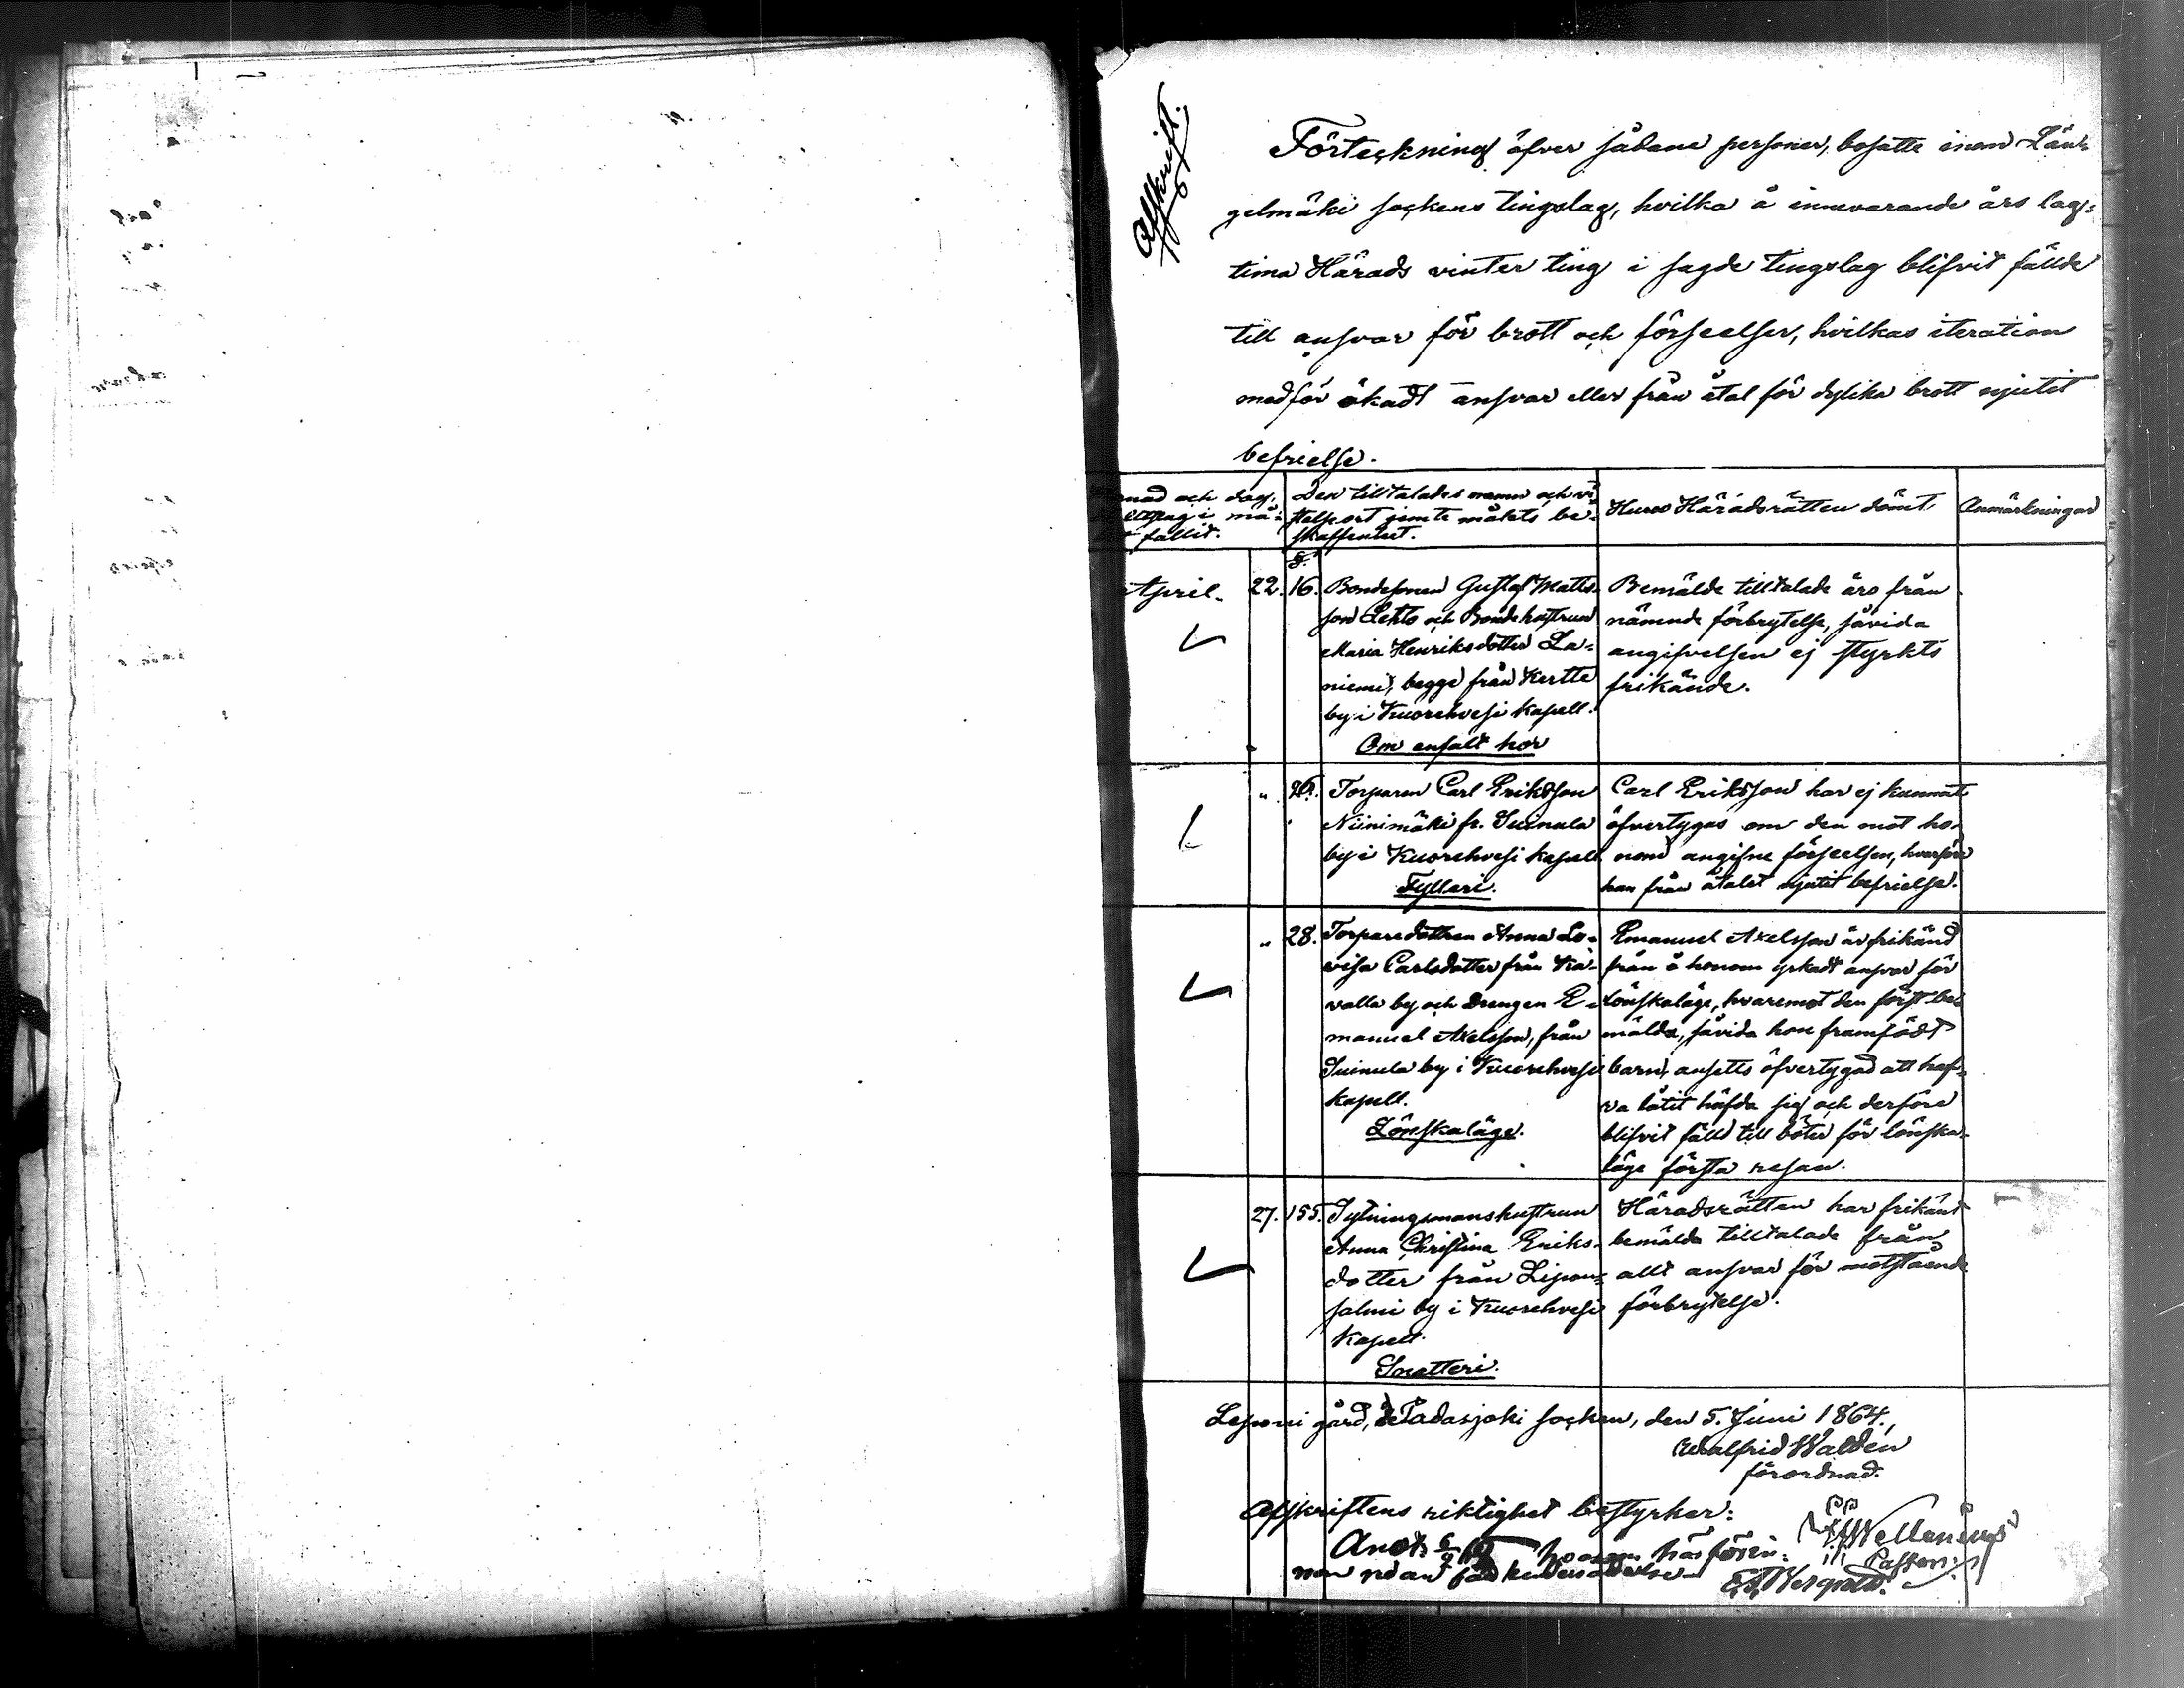 Afskrift.
Förteckning öfver sådane personer, bosatte inom Län-
gelmäki sockens tingslag, hvilka å innevarande års lag-
tima Härads vinter ting i sagde tingslag blifvit fällde
till ansvar för brott och förseelser, hvilkas iteration
medför ökadt ansvar eller från åtal för dylika brott njutit
befrielse.
nad och dag,
utslag i må-
t fallit.
Den tilltalades namn och vi-
stelseort jemte målets be-
skaffenhet.
Huru Häradsrätten dömt.
Anmärkningar
§.
April. 22. 16. Bondesonen Gustaf Matts-
son Lehto och Bondehustrun
Maria Henriksdotter La-
niemi, begge från Kertte
by i Kuorehvesi kapell.
Om enfalt hor
Bemälde tilltalade äro från
nämnde förbrytelse, såvida
angifvelsen ej styrkts
frikände.
" 26. Torparen Carl Eriksson
Niinimäki fr. Suinula
by i Kuorehvesi kapell
Fylleri.
Carl Eriksson har ej kunnat
öfvertygas om den mot ho-
nom angifne förseelsen, hvarföre
han från åtalet njutit befrielse.
" 28. Torparedottren Anna Lo-
visa Carlsdotter från Ka-
valla by och Drengen E-
manuel Axelsson, från
Suinula by i Kuorehvesi
kapell.
Lönskaläge.
Emanuel Axelsson är frikänd
från å honom yrkadt ansvar för
lönskaläge, hvaremot den först be-
mälda, såvida hon framfödt
barn, ansetts öfvertygad att haf-
va låtit häfda sig och derföre
blifvit fälld till böter för lönska-
läge första resan.
27. 155. Sytningsmanshustrun
Anna Christina Eriks-
dotter från Lipon-
salmi by i Kuorehvesi
Kapell.
Snatteri.
Häradsrätten har frikänt
bemälda tilltalade från
allt ansvar för motstående
förbrytelse.
gård, Padasjoki socken, den 5. Juni 1864.
Walfrid Waldén
förordnad.
Afskriftens riktighet bestyrker:
Wellenius
Pastor.